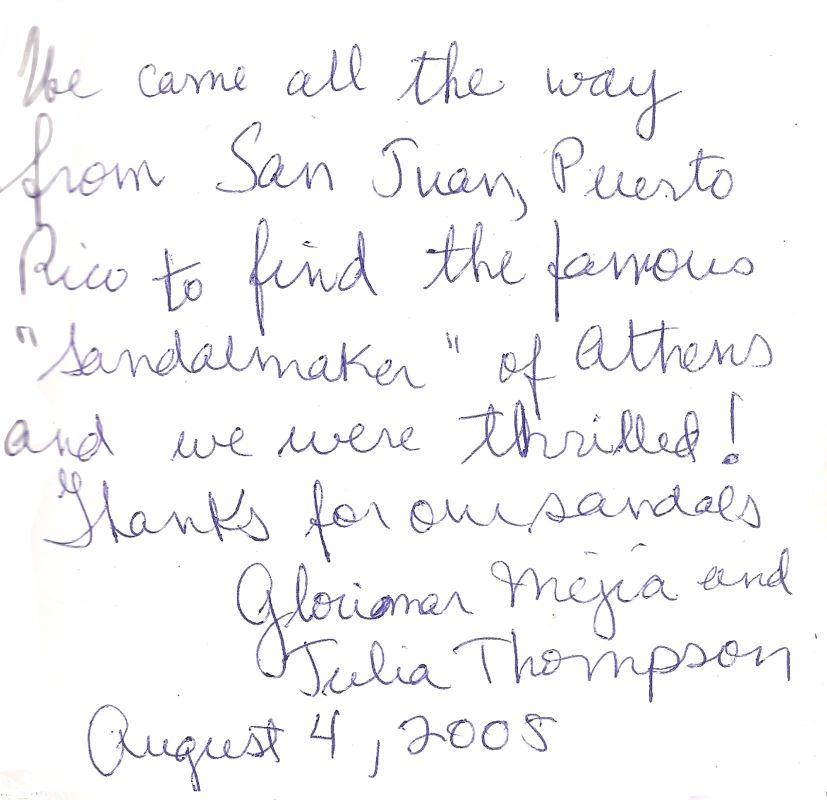 We came all the way
from San Juan, Puerto
Rico to find the famous
"Sandalmaker" of Athens
and we were thrilled!
Thanks for our sandals
Gloriamar Mejía and
Julia Thompson
August 4, 2005